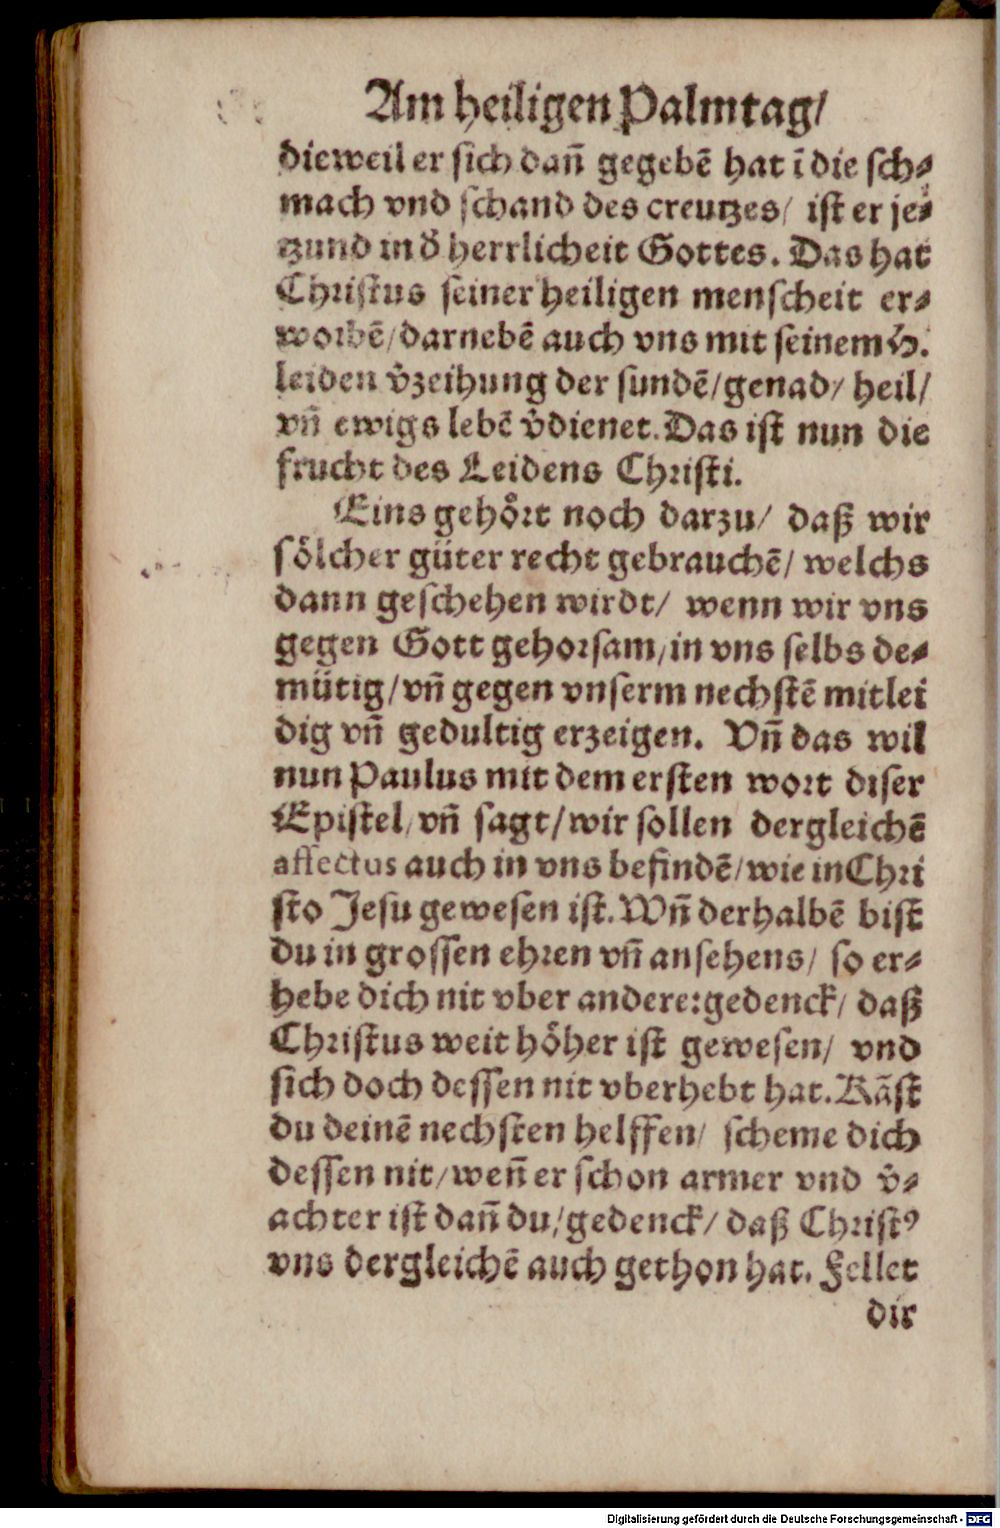 Am heiligen Palmtag/
dieweil er sich dañ gegebẽ hat ĩ die sch⸗
mach vnd schand des creutzes/ ist er je⸗
tzund in d̾ herrlicheit Gottes. Das hat
Christus seiner heiligen menscheit er⸗
worbẽ/ darnebẽ auch vns mit seinem H.
leiden v̾zeihung der sundẽ/ genad/ heil/
vñ ewigs lebẽ v̾dienet. Das ist nun die
frucht des Leidens Christi.
Eins gehoͤrt noch darzu/ daß wir
soͤlcher guͤter recht gebrauchẽ/ welchs
dann geschehen wirdt/ wenn wir vns
gegen Gott gehorsam/ in vns selbs de⸗
muͤtig/ vñ gegen vnserm nechstẽ mitlei
dig vñ gedultig erzeigen. Vñ das wil
nun Paulus mit dem ersten wort diser
Epistel/ vñ sagt/ wir sollen dergleichẽ
affectus auch in vns befindẽ/ wie in Chri
sto Jesu gewesen ist. Wñ derhalbẽ bist
du in grossen ehren vñ ansehens/ so er⸗
hebe dich nit vber andere: gedenck/ daß
Christus weit hoͤher ist gewesen/ vnd
sich doch dessen nit vberhebt hat. Kãst
du deinẽ nechsten helffen/ scheme dich
dessen nit/ weñ er schon armer vnd v̾⸗
achter ist dañ du/ gedenck/ daß Christꝰ
vns dergleichẽ auch gethon hat. Fellet
dir
Digitalisierung gefördert durch die Deutsche Forschungsgemeinschaft - DFG